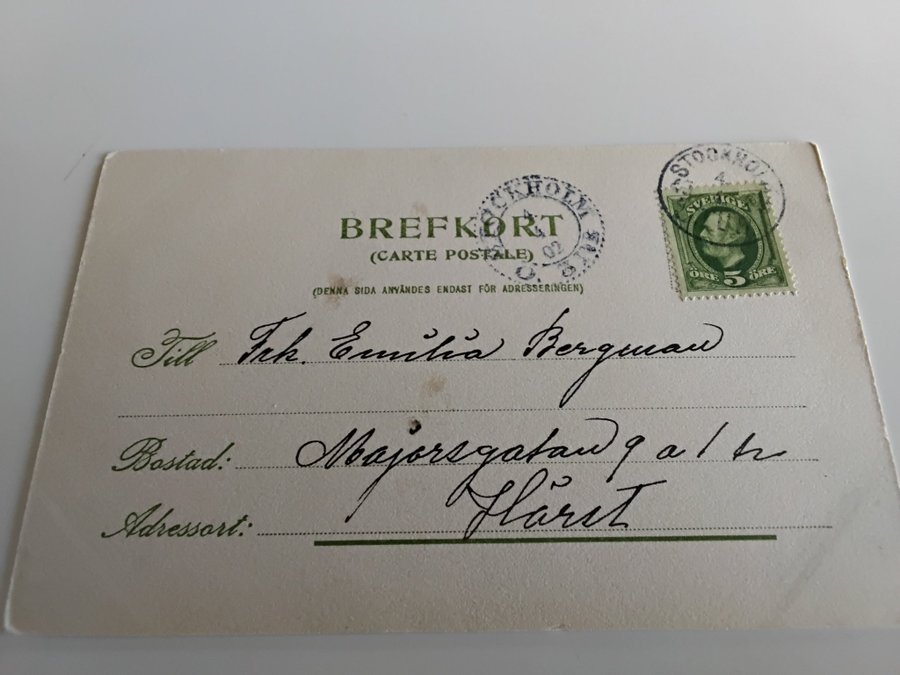 STOCKHOLM
4
STOCKHOLM
4
02
SVERIGE
BREFKORT
(CARTE POSTALE)
ÖRE 5 ÖRE
(DENNA SIDA ANVÄNDES ENDAST FÖR ADRESSERINGEN)
Till Frk. Emilia Bergman
Bostad: Majorsgatan 9 a 1 tr
Adressort: Härst